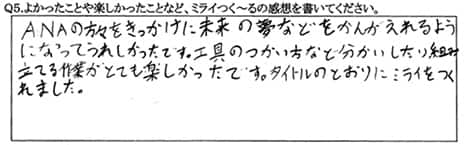 Q5.よかったことや楽しかったことなど、ミライつく～るの感想を書いてください。
ANAの方々をきっかけに未来の夢などをかんがえれるよう
になってうれしかったです。工具のつかい方など分かいしたり組み
立てる作業がとても楽しかったです。タイトルのとおりにミライをつく
れました。